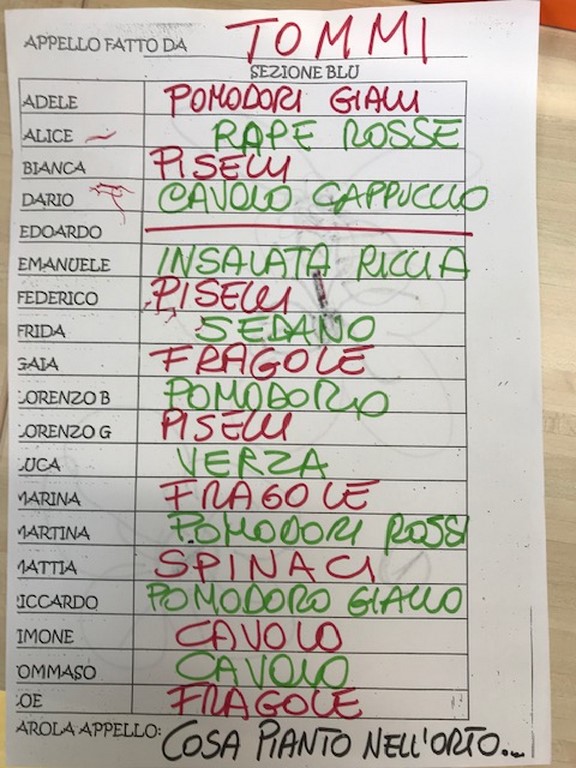 APPELLO FATTO DA TOMMI
SEZIONE BLU
ADELE POMODORI GIALLI
ALICE RAPE ROSSE
BIANCA PISELLI
DARIO CAVOLO CAPPUCCIO
EDOARDO
EMANUELE INSALATA RICCIA
FEDERICO PISELLI
FRIDA SEDANO
GAIA FRAGOLE
LORENZO B POMODORO
LORENZO G PISELLI
LUCA VERZA
MARINA FRAGOLE
MARTINA POMODORI ROSSI
MATTIA SPINACI
RICCARDO POMODORO GIALLO
IMONE CAVOLO
OMMASO CAVOLO
OE FRAGOLE
AROLA APPELLO: COSA PIANTO NELL'ORTO...